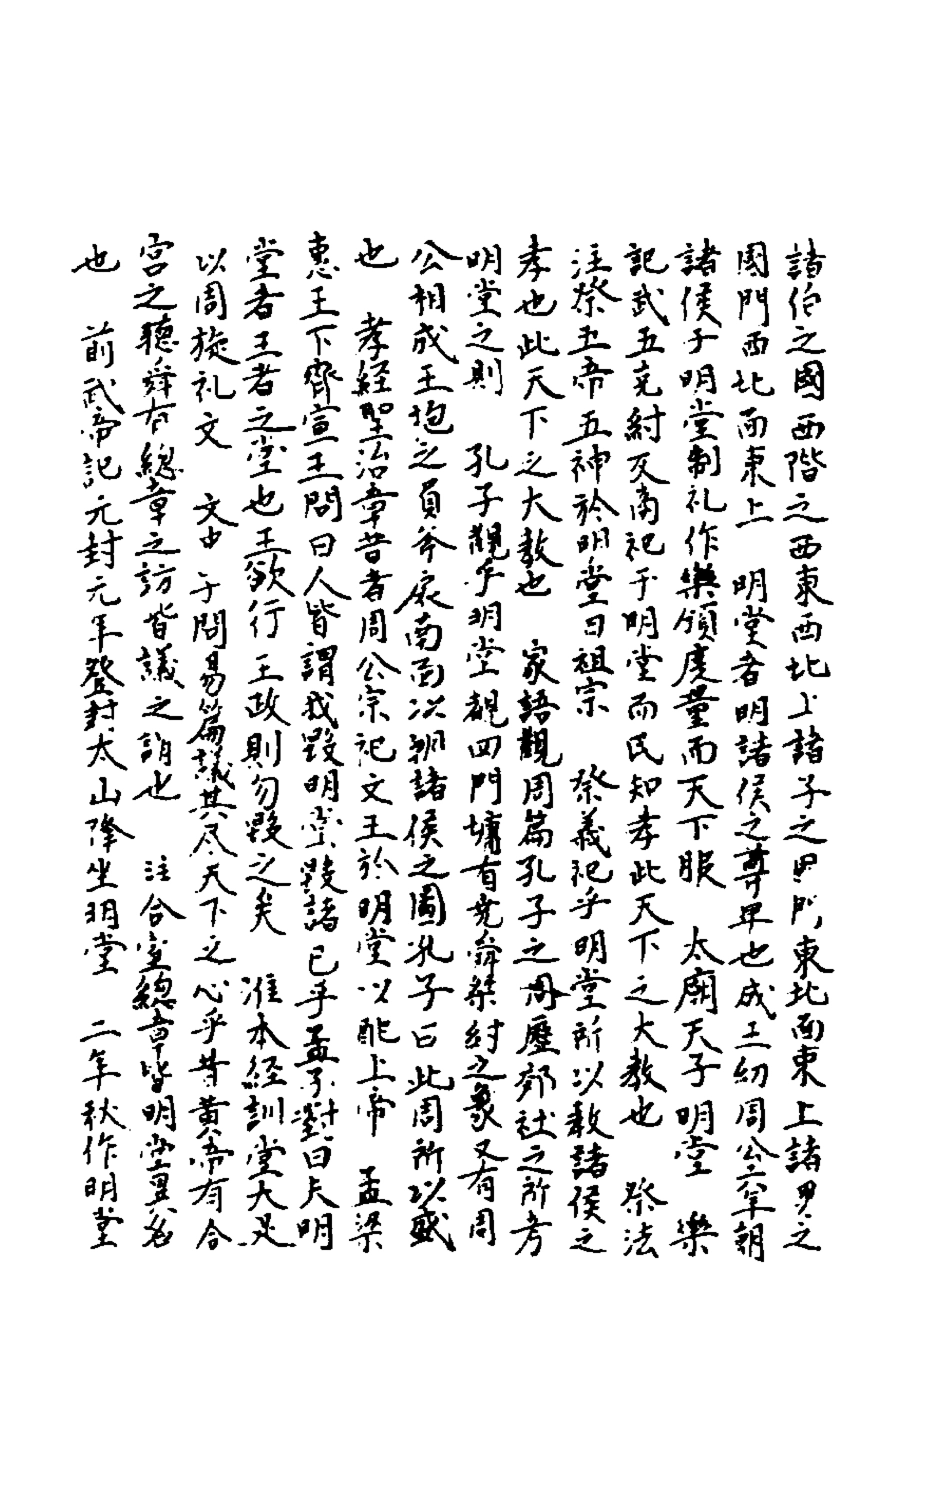 諸伯之國西階之西東西北上諸子之男門東北面東上諸男之
國門西北面東上　明堂者明諸侯之尊卑也成王幼周公率朝
諸侯于明堂制礼作樂頒度量而天下服　太廟天子明堂　樂
記武王克紂反商祀于明堂而民知孝此天下之大教也　祭法
注祭五帝五神於明堂曰祖宗　祭義祀乎明堂所以教諸侯之
孝也此天下之大教也　家語觀周篇孔子之周歷郊社之所考
明堂之則　孔子觀乎明堂覩四門墉有堯舜桀紂之象又有周
公相成王抱之負斧扆南面以朝諸侯之圖孔子曰此周所以盛
也　孝経聖治章昔者周公宗祀文王於明堂以配上帝　孟梁
惠王下齊宣王問曰人皆謂我毀明堂毀諸已乎孟子對曰夫明
堂者王者之堂也王欲行王政則勿毀之矣　淮本経訓堂大足
以周旋礼文　文中子問易篇議其尽天下之心乎昔黃帝有合
宮之聽舜有總章之訪皆議之謂也　注合宮總章皆明堂異名
也　前武帝記元封元年登封太山降坐明堂　二年秋作明堂